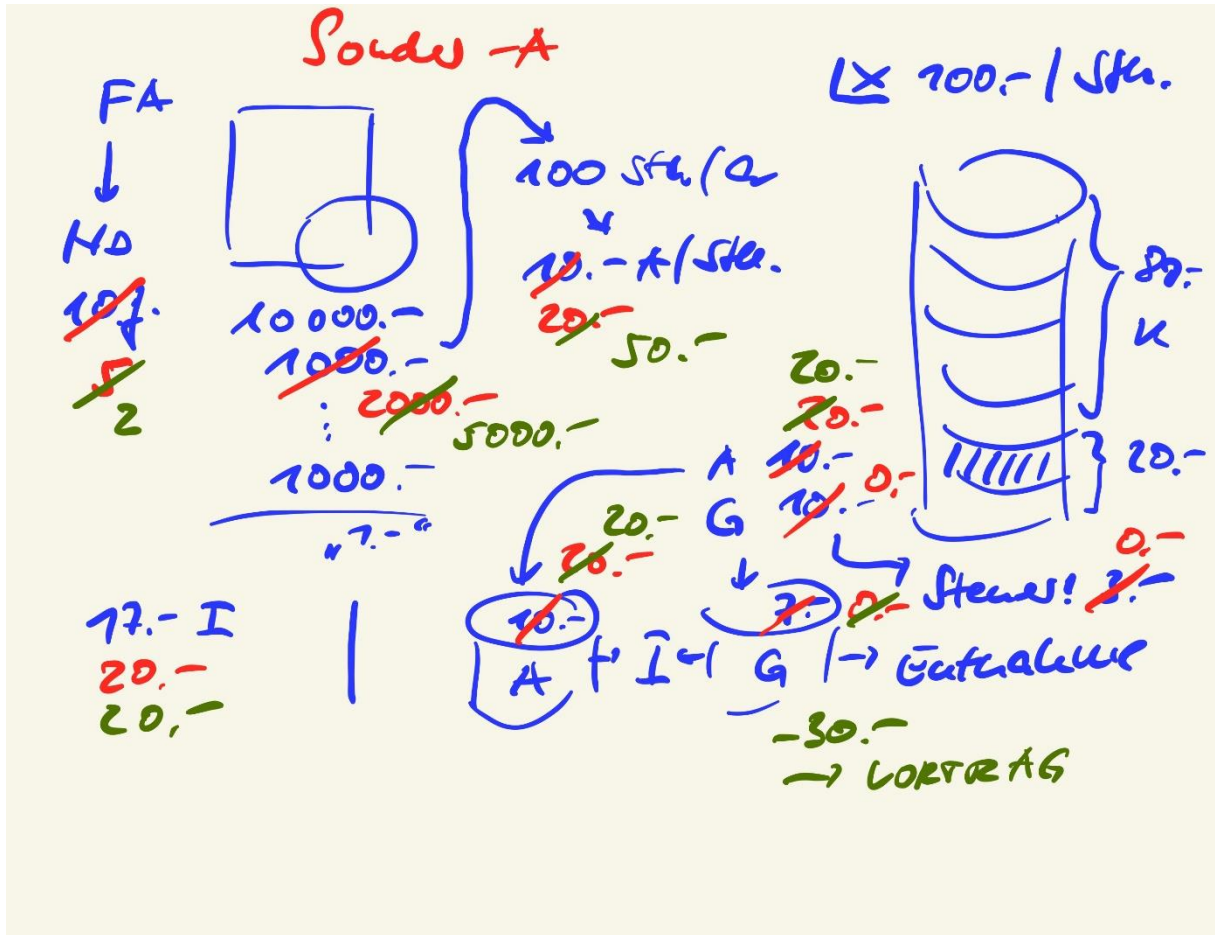 Sonder-A
FA
ND
10 J.
5
2
10 000.-
1000.-
2000.-
5000.-
:
1000.-
"1.-"
100 Stk. / a
10.- A / Stk.
20.-
50.-
LX 100.- / Stk.
80.-
K
20.-
20.-
20.-
A 10.-
G 10.- 0.-
20.-
20.-
10.-
A → I ← G → Entnahme
7.- 0.-
Steuer! 3.-
0.-
17.- I
20.-
20,-
-30.-
→ VORTRAG